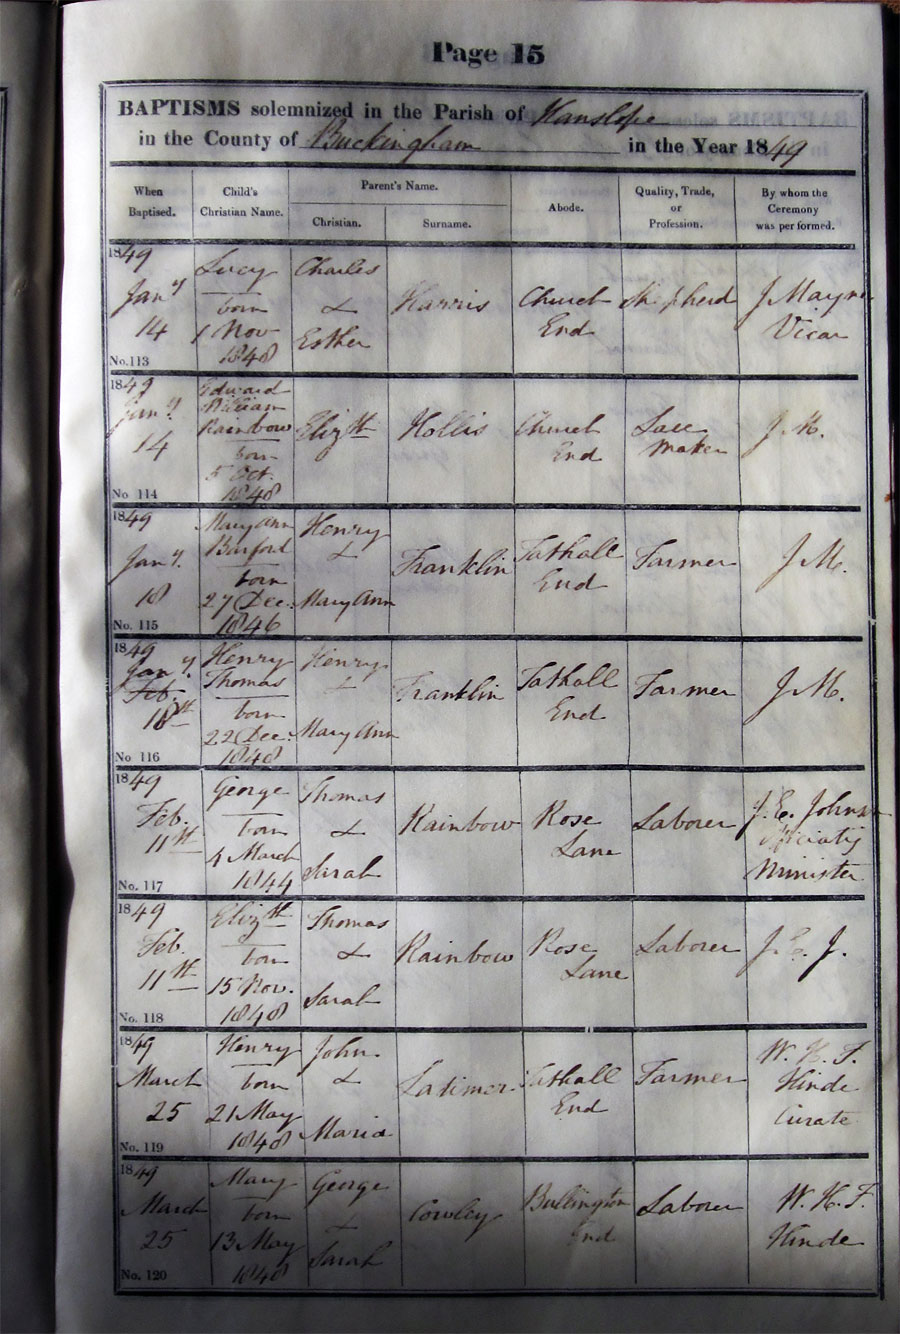 Page 15
BAPTISMS solemnized in the Parish of Hanslope
in the County of Buckingham in the Year 1849
When Baptised.
Child's Christian Name.
Parent's Name.
Christian.
Surname.
Abode.
Quality, Trade, or Profession.
By whom the Ceremony was performed.
1849
Jany
14
No. 113
Lucy
born
1 Nov
1848
Charles
&
Esther
Harris
Church
End
Shepherd
J Mayne
Vicar
1849
Jany
14
No 114
Edward
William
Rainbow
born
5 Oct.
1848
Elizth
Hollis
Church
End
Lace
Maker
J. M.
1849
Jany.
18
No. 115
Mary Ann
Barford
born
27 Dec.
1846
Henry
&
Mary Ann
Franklin
Tathall
End
Farmer
J. M.
1849
Jany.
Feb.
18th
No 116
Henry
Thomas
born
22 Dec.
1848
Henry
&
Mary Ann
Franklin
Tathall
End
Farmer
J. M.
1849
Feb.
11th
No. 117
George
born
4 March
1844
Thomas
&
Sarah
Rainbow
Rose
Lane
Laborer
J. E.
Minister
1849
Feb.
11th
No. 118
Elizth
born
15 Nov.
1848
Thomas
&
Sarah
Rainbow
Rose
Lane
Laborer
J. E. J.
1849
March
25
No. 119
Henry
born
21 May
1848
John
&
Maria
Latimer
Tathall
End
Farmer
W. H. F.
Hinde
Curate
1849
March
25
No. 120
Mary
born
13 May
1848
George
&
Sarah
Cowley
Bullington
End
Laborer
W. H. F.
Hinde